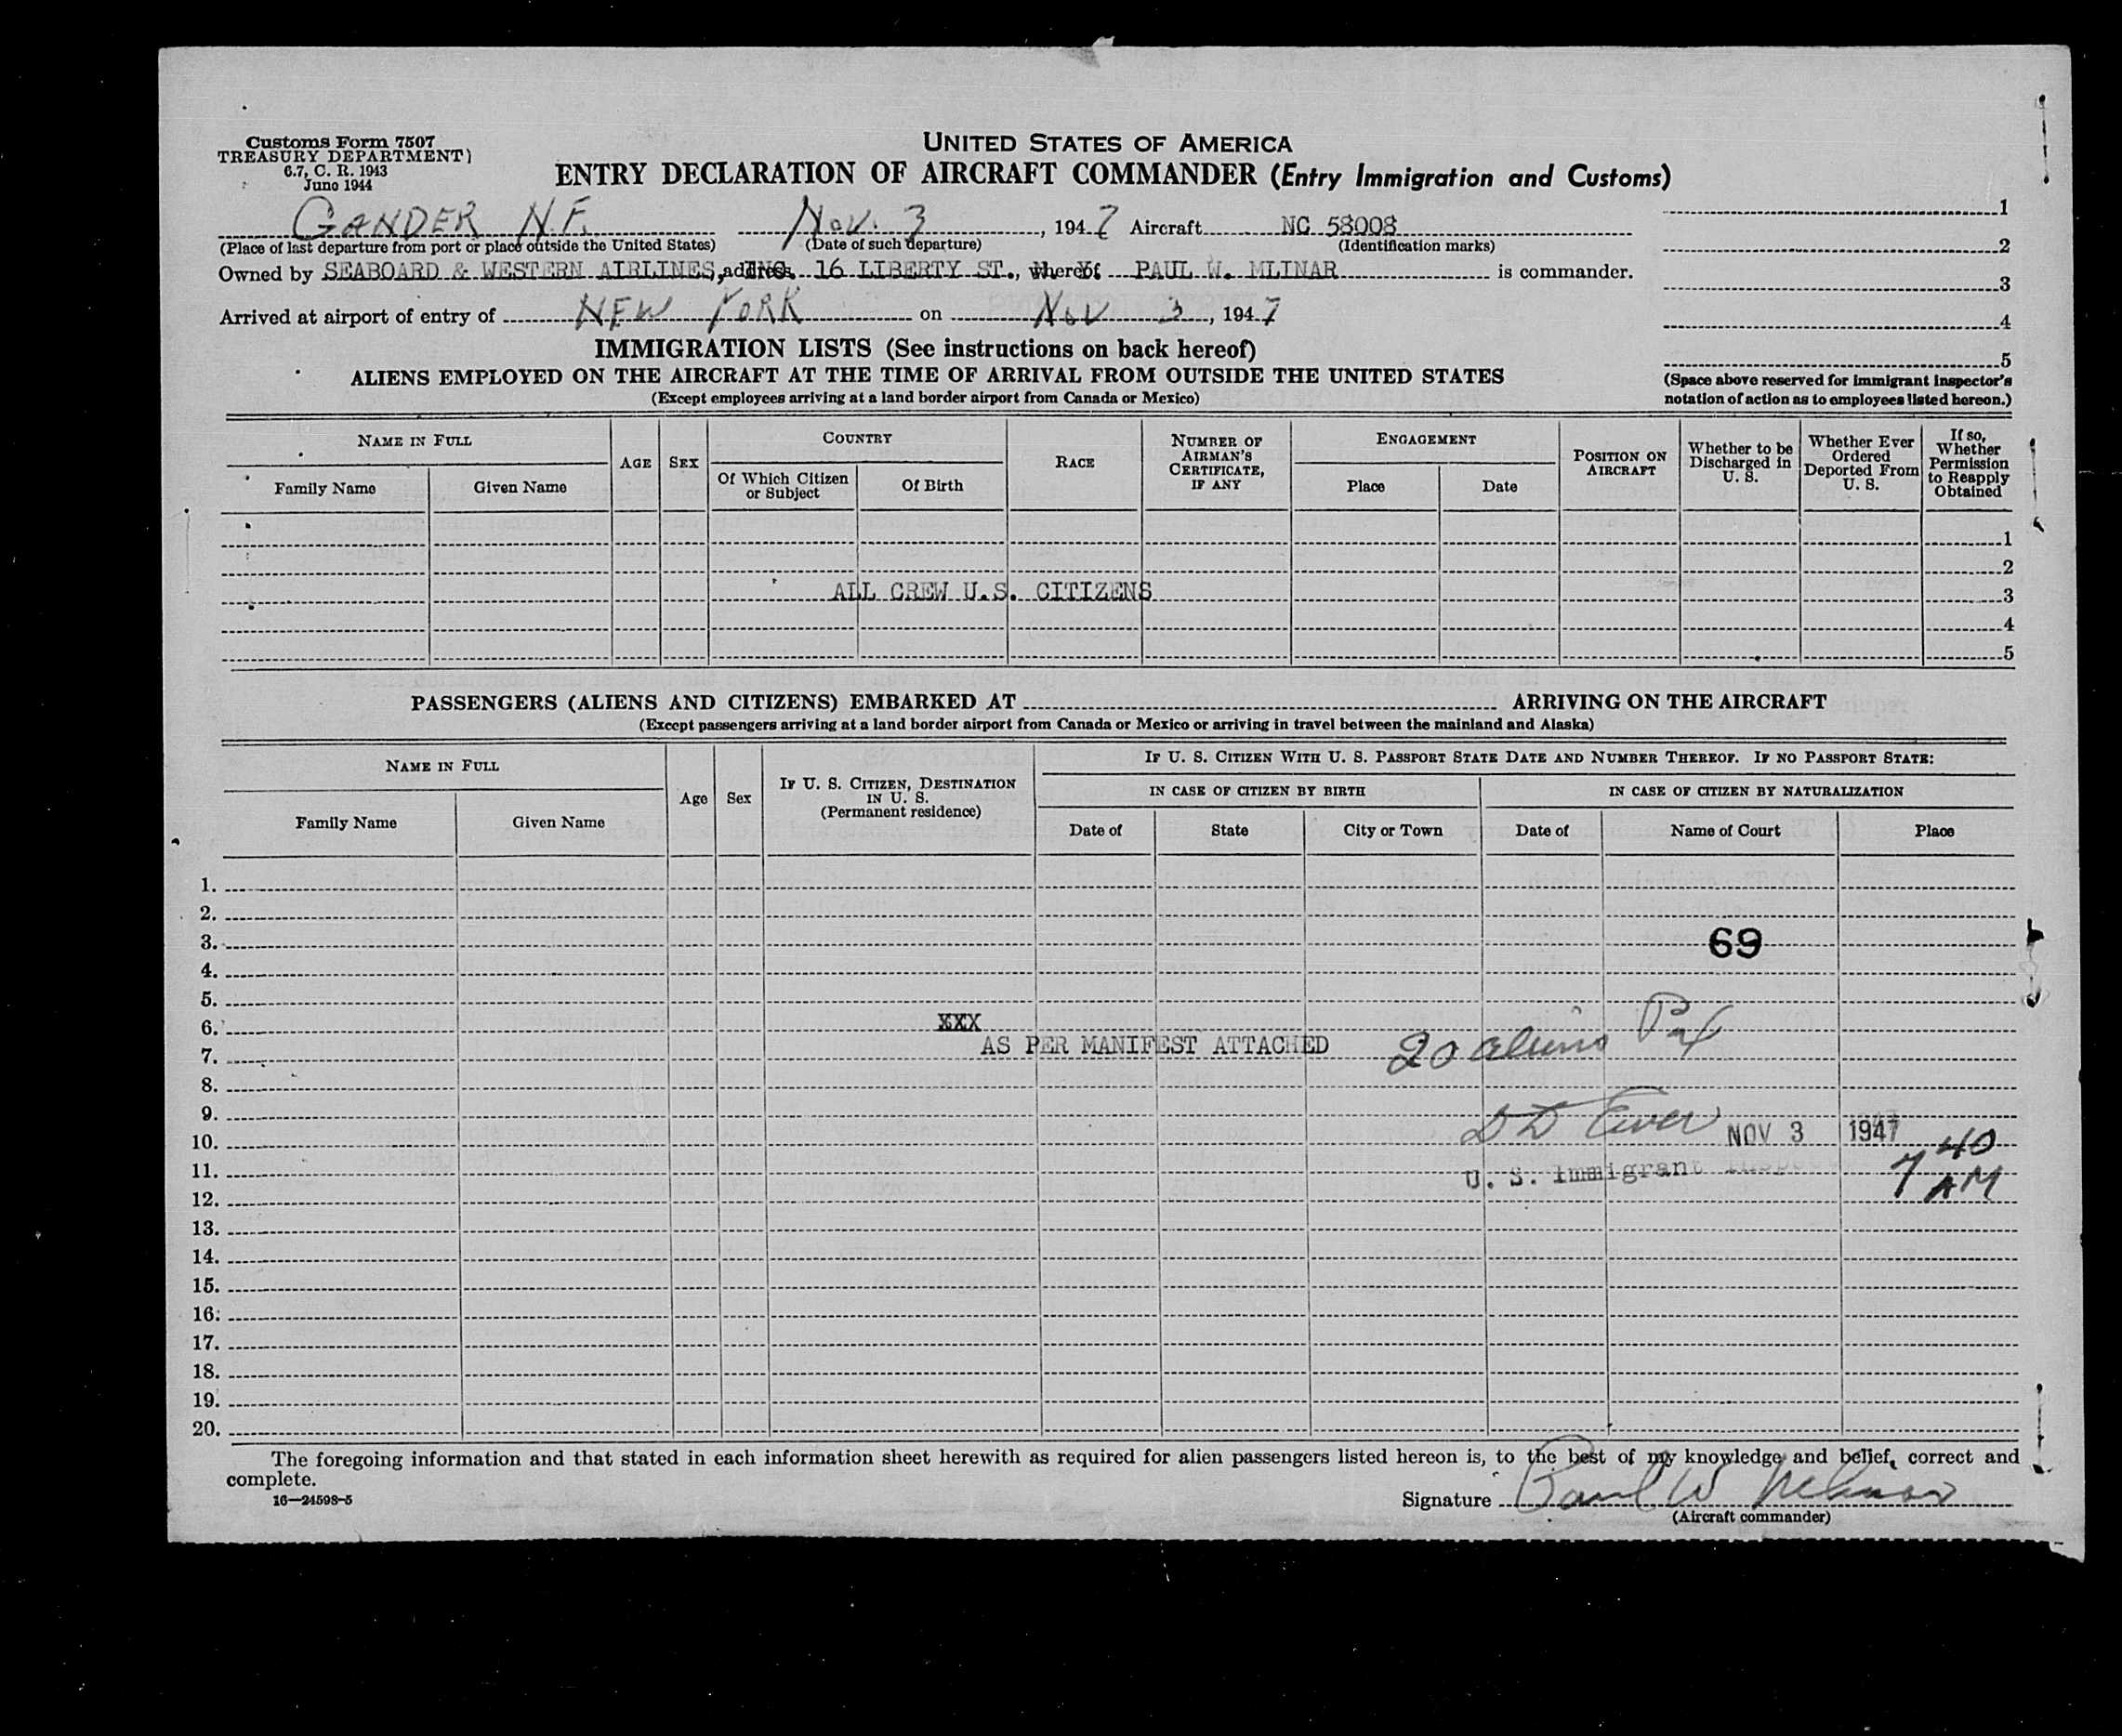 Customs Form 7507
TREASURY DEPARTMENT)
6.7, C. R. 1943
June 1944
UNITED STATES OF AMERICA
ENTRY DECLARATION OF AIRCRAFT COMMANDER (Entry Immigration and Customs)
GANDER N.F. Nov. 3, 1947 Aircraft NC 58008
(Place of last departure from port or place outside the United States) (Date of such departure) (Identification marks)
Owned by SEABOARD & WESTERN AIRLINES, INC. address 16 LIBERTY ST., N. Y. whereof PAUL W. MLINAR is commander.
Arrived at airport of entry of NEW YORK on Nov 3, 1947
1
2
3
4
5
(Space above reserved for immigrant inspector's
notation of action as to employees listed hereon.)
IMMIGRATION LISTS (See instructions on back hereof)
ALIENS EMPLOYED ON THE AIRCRAFT AT THE TIME OF ARRIVAL FROM OUTSIDE THE UNITED STATES
(Except employees arriving at a land border airport from Canada or Mexico)
NAME IN FULL
Family Name
Given Name
AGE
SEX
COUNTRY
Of Which Citizen
or Subject
Of Birth
RACE
NUMBER OF
AIRMAN'S
CERTIFICATE,
IF ANY
ENGAGEMENT
Place
Date
POSITION ON
AIRCRAFT
Whether to be
Discharged in
U. S.
Whether Ever
Ordered
Deported From
U. S.
If so,
Whether
Permission
to Reapply
Obtained
1
2
ALL CREW U.S. CITIZENS 3
4
5
PASSENGERS (ALIENS AND CITIZENS) EMBARKED AT ARRIVING ON THE AIRCRAFT
(Except passengers arriving at a land border airport from Canada or Mexico or arriving in travel between the mainland and Alaska)
NAME IN FULL
Family Name
Given Name
Age
Sex
IF U. S. CITIZEN, DESTINATION
IN U. S.
(Permanent residence)
IF U. S. CITIZEN WITH U. S. PASSPORT STATE DATE AND NUMBER THEREOF. IF NO PASSPORT STATE:
IN CASE OF CITIZEN BY BIRTH
IN CASE OF CITIZEN BY NATURALIZATION
Date of
State
City or Town
Date of
Name of Court
Place
1.
2.
3. 69
4.
5.
6. XXX
7. AS PER MANIFEST ATTACHED 20 aliens Pax
8.
9.
10. NOV 3 1947 7 40 AM
11. U. S. Immigrant Inspec
12.
13.
14.
15.
16.
17.
18.
19.
20.
The foregoing information and that stated in each information sheet herewith as required for alien passengers listed hereon is, to the best of my knowledge and belief, correct and
complete.
16—24598-5
Signature Paul W Mlinar
(Aircraft commander)